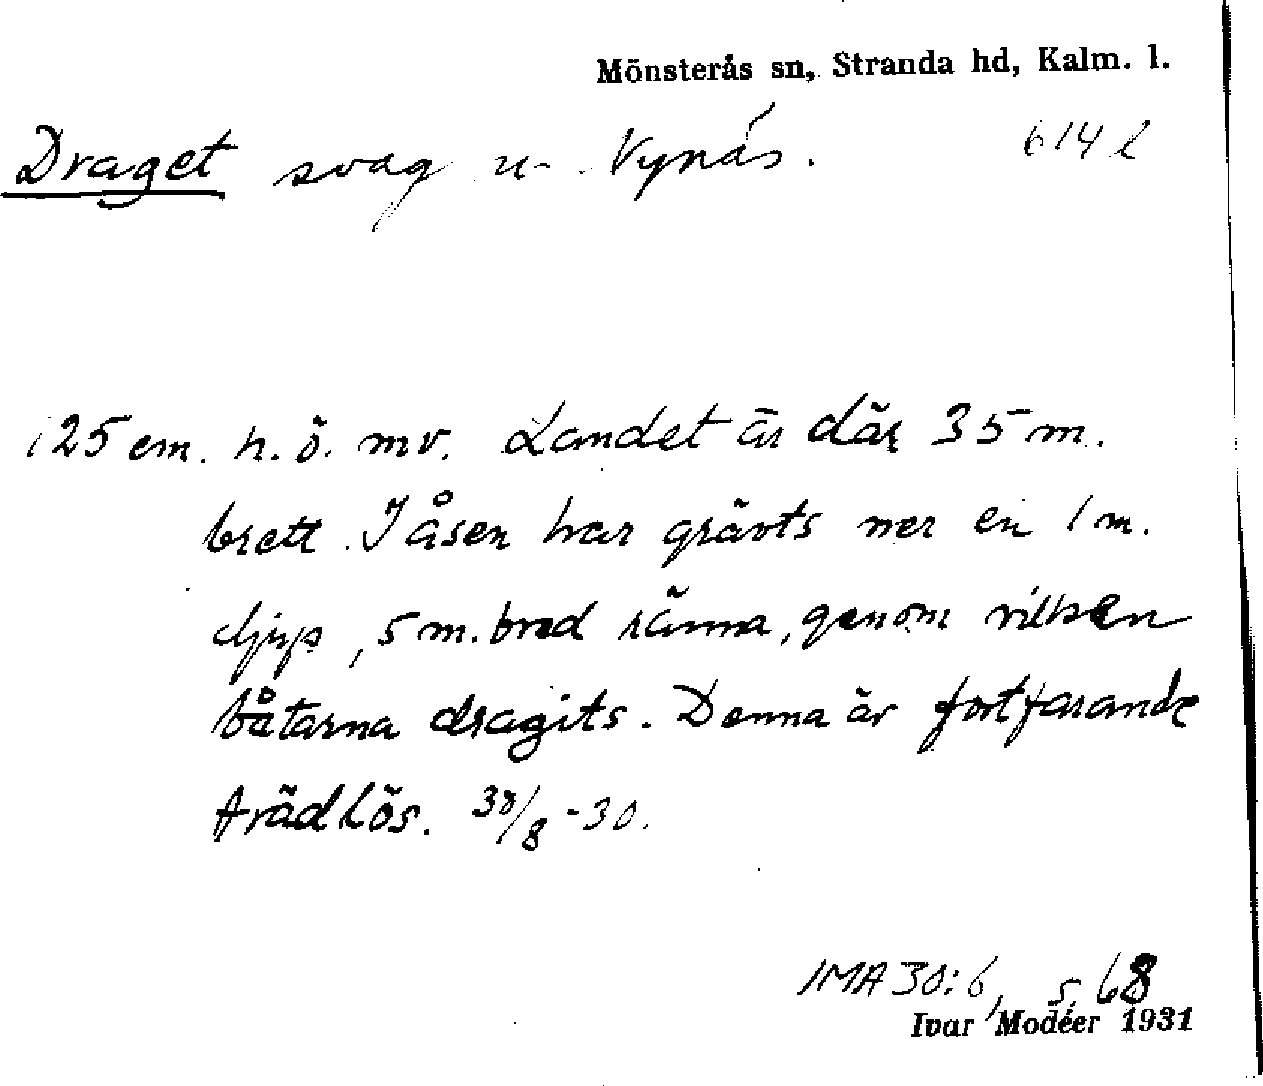 Mönsterås sn, Stranda hd, Kalm. l.
Draget svag u. Vynäs. 614 l
125 cm. h. ö. mv. Landet är där 35 m.
brett. I åsen har grävts ner en 1 m.
djup, 5 m. bred ränna, genom vilken
båtarna dragits. Denna är fortfarande
trädlös. 30/8 -30.
IMA 30:6, s. 68
Ivar Modéer 1931